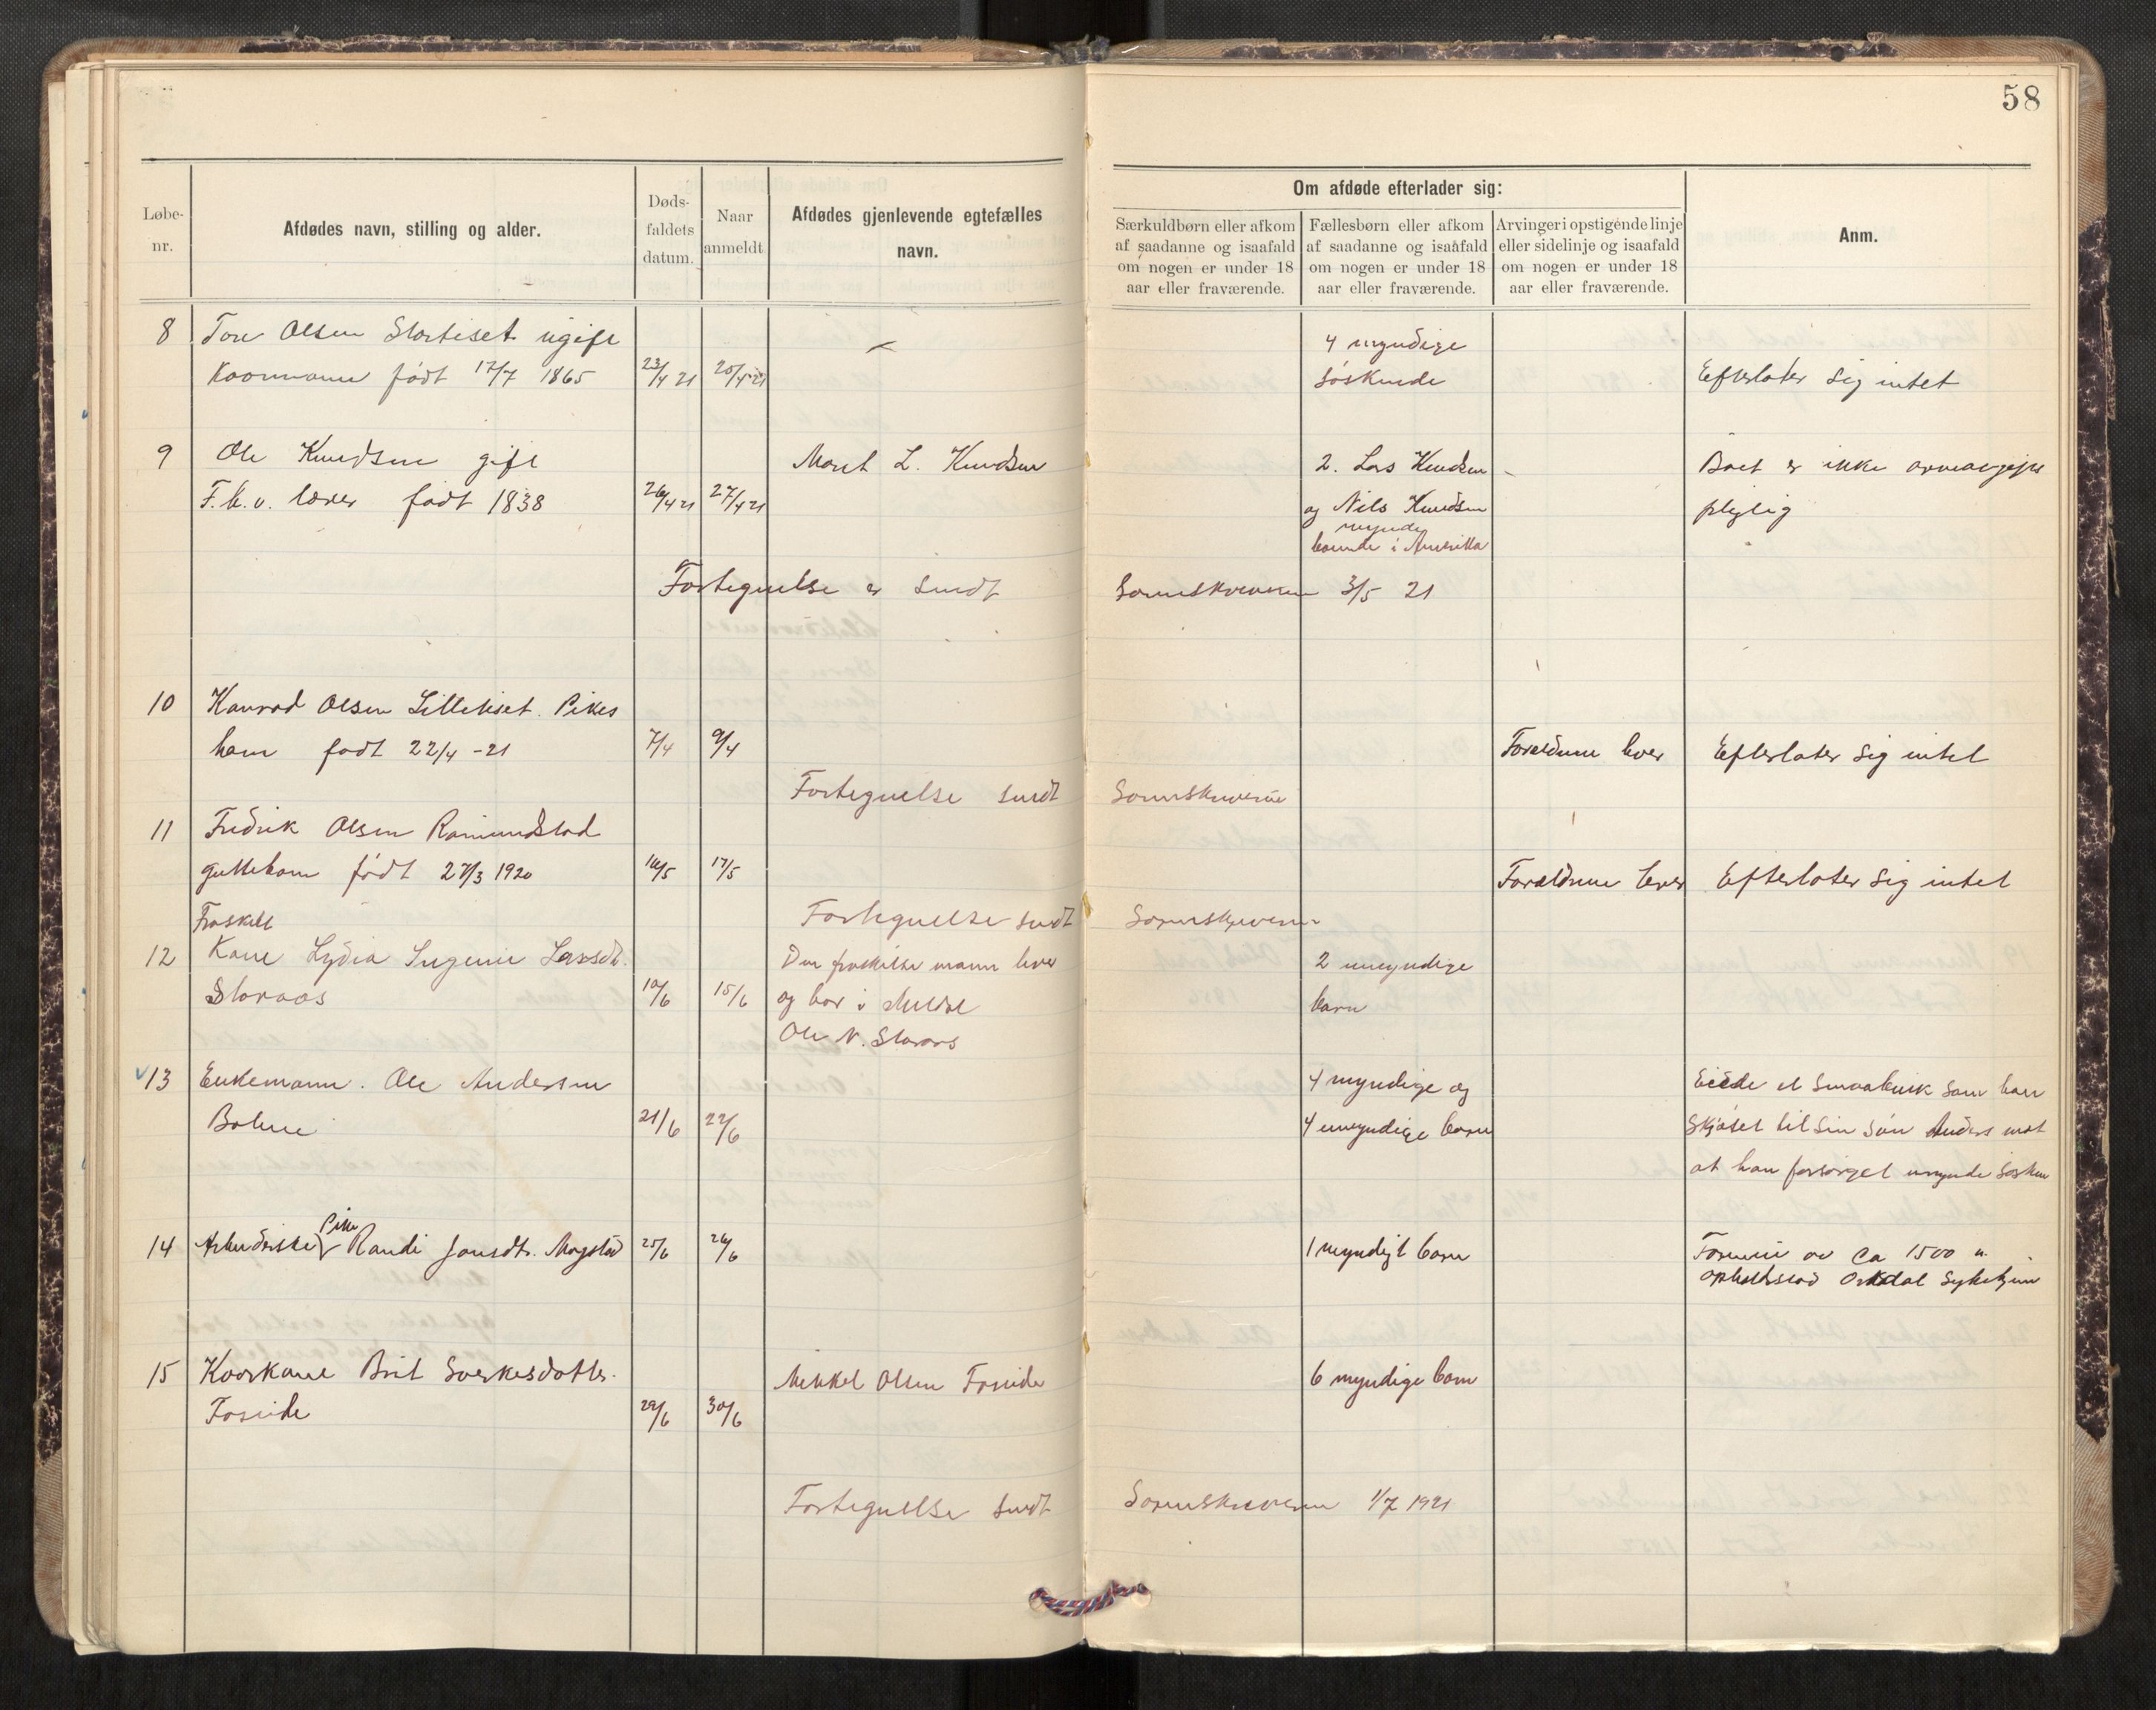 58
Løbe-
nr.
Afdødes navn, stilling og alder.
Døds-
faldets
datum.
Naar
anmeldt
Afdødes gjenlevende egtefælles
navn.
Om afdøde efterlader sig:
Særkuldbørn eller afkom
af saadanne og isaafald
om nogen er under 18
aar eller fraværende.
Fællesbørn eller afkom
af saadanne og isaafald
om nogen er under 18
aar eller fraværende.
Arvinger i opstigende linje
eller sidelinje og isaafald
om nogen er under 18
aar eller fraværende.
Anm.
8 Tore Olsen ugift 4 myndige
født 17/7 1865 23/4 21 25/4 21 søskende Efterlater sig intet
9 Ole Knudsen gift Marit L. Knudsen 2. Lars Knudsen Boet er ikke
F. h.v. lærer født 1838 26/4 21 27/4 21 og Nils Knudsen pligtig
myndig
boende i Amerika
Fortegnelse er sendt Sorenskriveren 3/5 21
10 Konrad Olsen Litlekset. Pike
barn født 22/4 - 21 7/4 9/4 Foreldrene lever Efterlater sig intet
Fortegnelse sendt Sorenskriveren
11 Fredrik Olsen Ramundstad
guttebarn født 27/3 1920 16/5 17/5 Foreldrene lever Efterlater sig intet
Fraskilt Fortegnelse sendt Sorenskriveren
12 Kone Lydia Ingenie Larsdt. Den fraskilte mann lever 2 umyndige
Storaas 10/6 15/6 og bor i Meldal barn
Ole N. Storaas
13 Enkemann. Ole Andersen 4 myndige og Eiede et smaabruk som han
21/6 22/6 4 umyndige barn skjøtet til sin søn Anders mot
at han forsørget umynde søsken
14 Arbeiderske Pike Randi Jonsdt. Mogstad 25/6 26/6 1 myndigt barn Formue av ca 1500 kr.
opholdssted Orkdal Sykehjem
15 Kaarkone Brit Sverkesdatter. Mikkel Olsen Foseide 6 myndige barn
Foseide 29/6 30/6
Fortegnelse sendt Sorenskriveren 1/7 1921